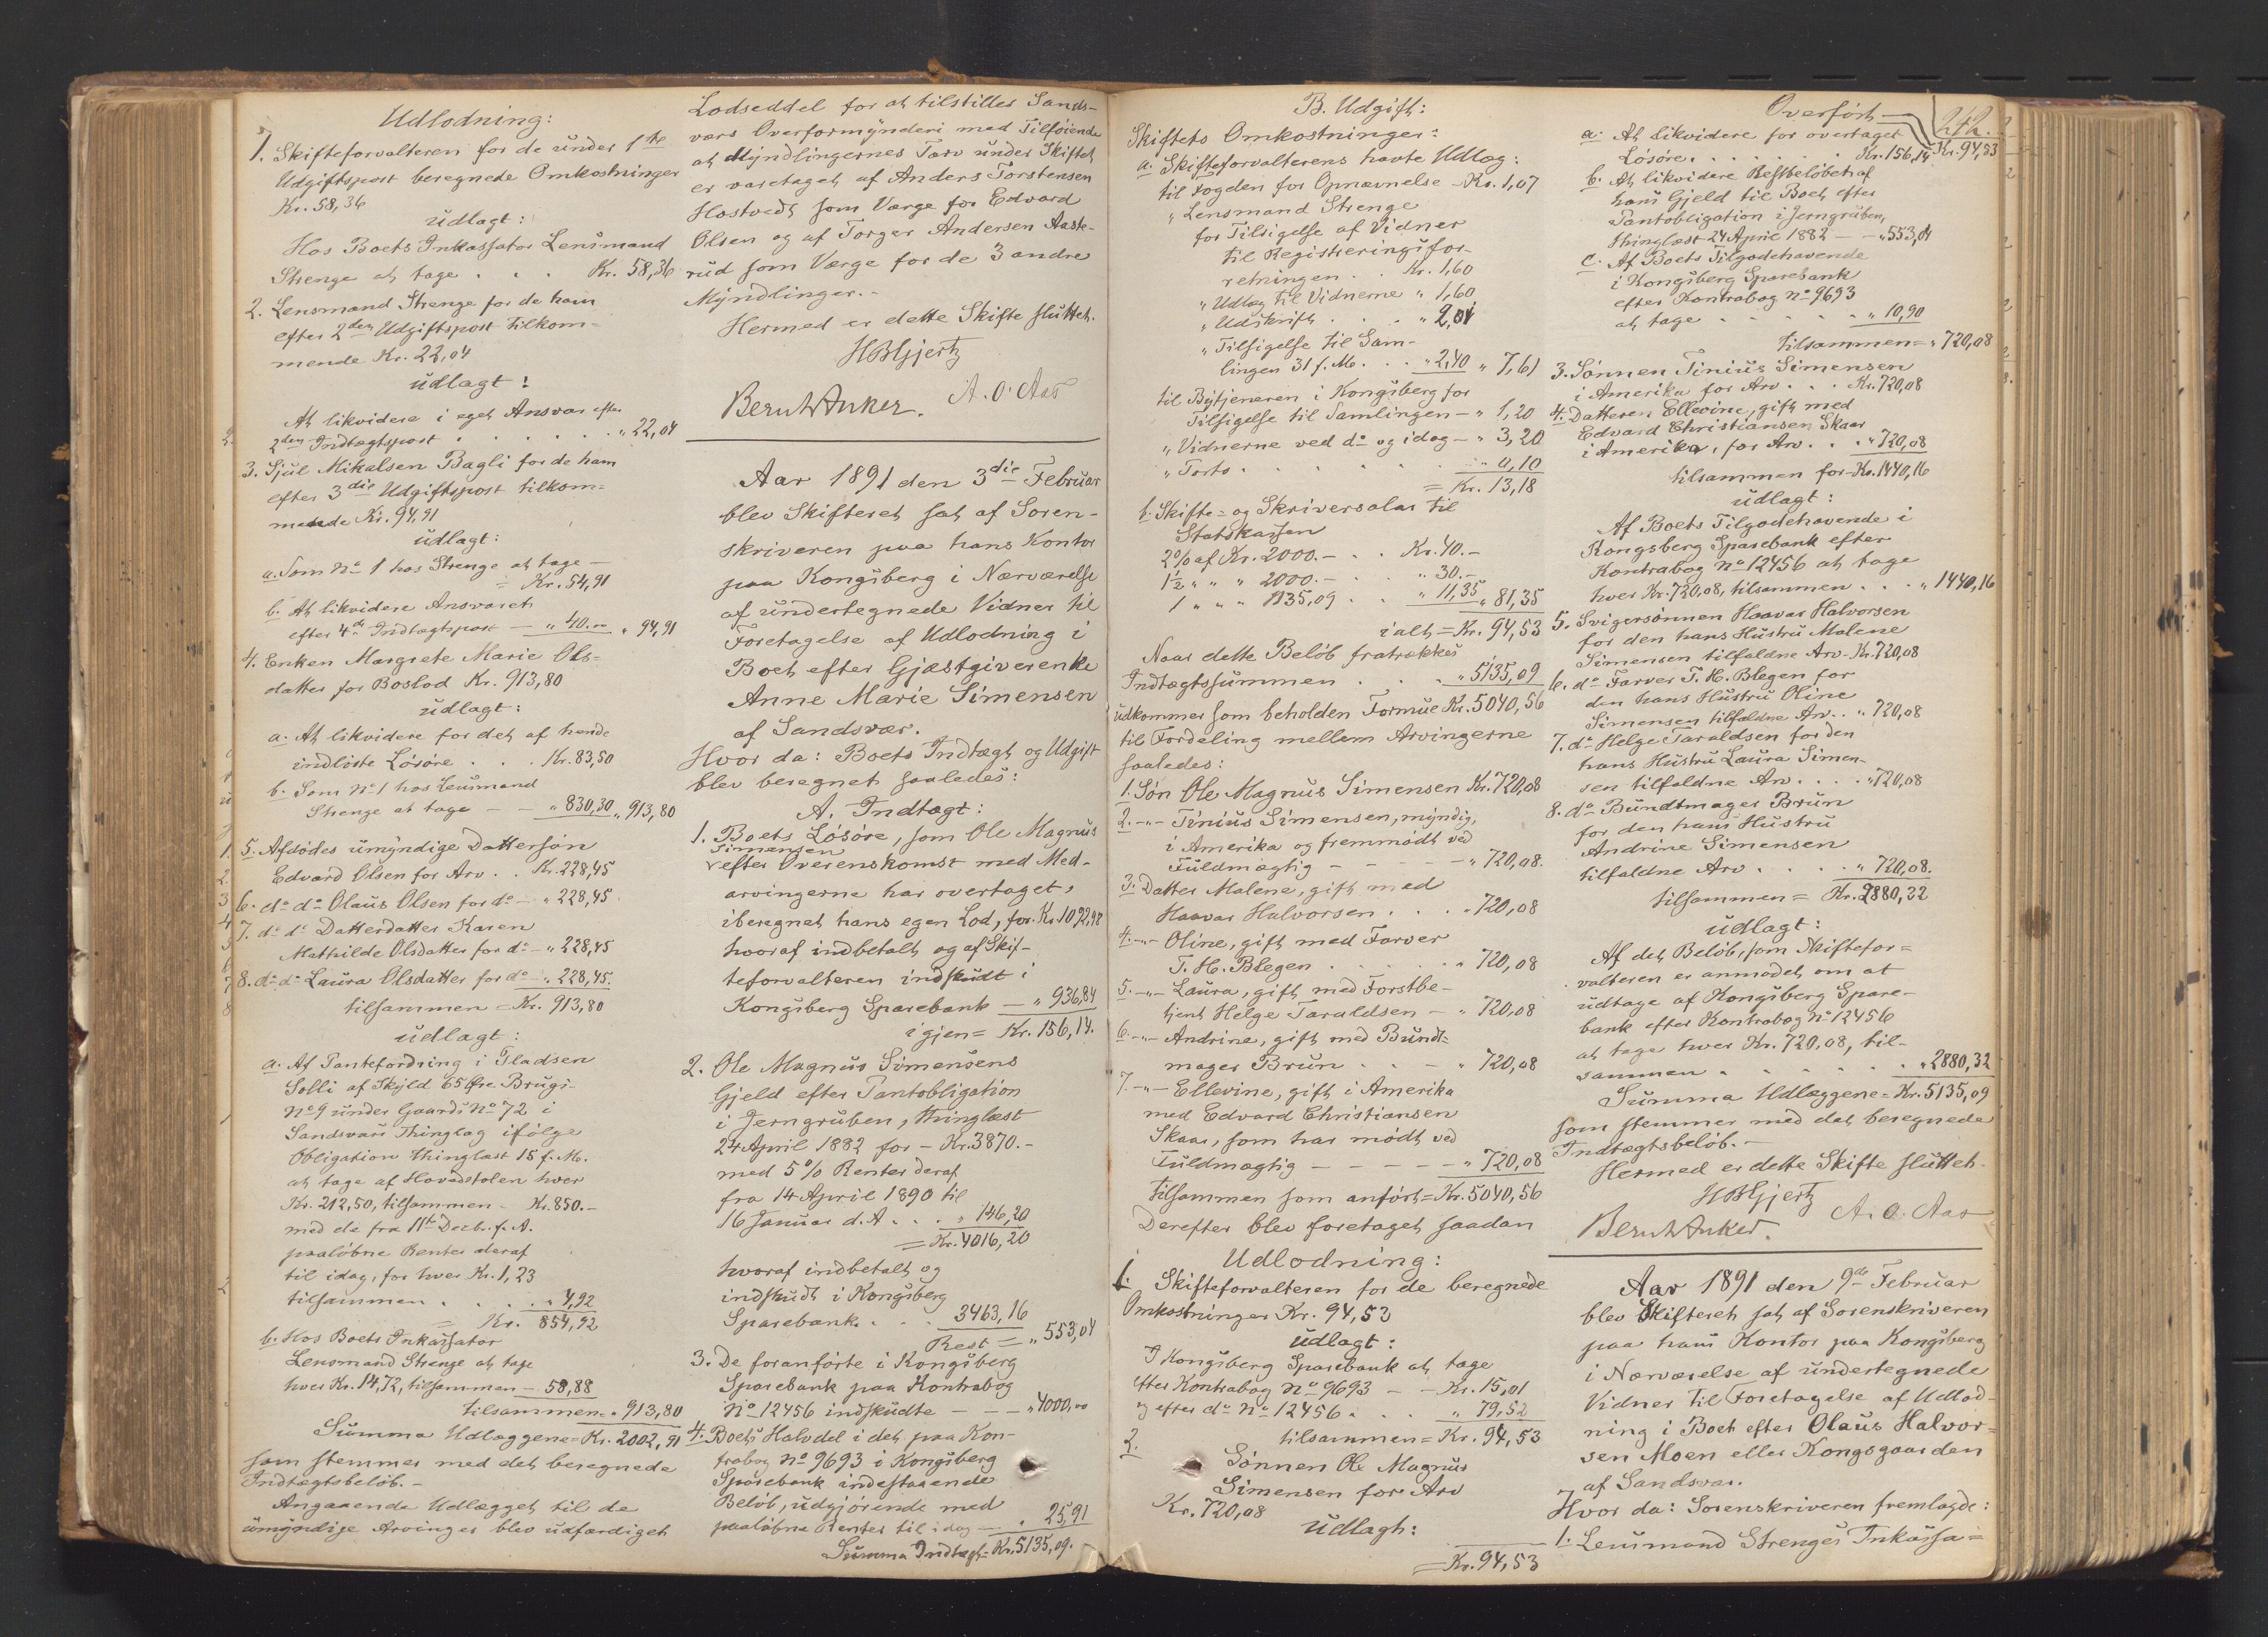 Udlodning:
1. Skifteforvalteren for de under 1ste
Udgiftspost beregnede Omkostninger
Kr. 58,36
udlagt:
Hos Boets Inkassator Lensmand
Strenge at tage . . . Kr. 58,36
2. Lensmand Strenge for de ham
efter 2den Udgiftspost tilkom-
mende Kr. 22,04
udlagt:
At likvidere i eget Ansvar efter
2den Indtægtspost . . . . . . " 22,04
3. Sjul Mikalsen Bagli for de ham
efter 3die Udgiftspost tilkom=
mende Kr. 94,91
udlagt:
a. Som No 1 hos Strenge at tage —
= Kr. 54,91
b. At likvidere Ansvaret
efter 4de Indtægtspost — " 40.00 " 94,91
4. Enken Margrete Marie Ols=
datter for Boslod Kr. 913,80
udlagt:
a. At likvidere for det af hende
indløste Løsøre . . . Kr. 83,50
b. Som No 1 hos Lensmand
Strenge at tage — — " 830,30 " 913,80
5. Afdødes umyndige Dattersøn
Edvard Olsen for Arv . . Kr. 228,45
6. do do Olaus Olsen for do — " 228,45
7. do do Datterdatter Karen
Mathilde Olsdatter for do — " 228,45
8. do do Laura Olsdatter for do — " 228,45.
tilsammen = Kr. 913,80
udlagt:
a. Af Pantefordring i Pladsen
Solli af Skyld 65 Øre Brugs-
No 9 under Gaards No 72 i
Sandsværs Thinglag ifølge
Obligation thinglæst 15 f. M.
at tage af Hovedstolen hver
Kr. 212,50, tilsammen - Kr. 850.-
med de fra 11te Decbr. f. A.
paaløbne Renter deraf
til idag, for hver Kr. 1,23
tilsammen . . . . " 4,92
= Kr. 854,92
b. Hos Boets Inkassator
Lensmand Strenge at tage
hver Kr. 14,72, tilsammen — 58,88
tilsammen = " 913,80
Summa Udlæggene = Kr. 2002,91
som stemmer med det beregnede
Indtægtsbeløb. -
Angaaende Udlægget til de
umyndige Arvinger blev udfærdiget
Lodseddel for at tilstilles Sands-
værs Overformynderi med Tilføiende
at Myndlingernes Tarv under Skiftet
er varetaget af Anders Torstensen
Hostvedt som Værge for Edvard
Olsen og af Torger Andersen Aaste-
rud som Værge for de 3 andre
Myndlinger. -
Hermed er dette Skifte sluttet.
HBGjertz
Bernh Anker. A. O. Aas
Aar 1891 den 3die Februar
blev Skifteret sat af Soren-
skriveren paa hans Kontor
paa Kongsberg i Nærværelse
af undertegnede Vidner til
Foretagelse af Udlodning i
Boet efter Gjæstgiverenke
Anne Marie Simensen
af Sandsvær.
Hvor da: Boets Indtægt og Udgift
blev beregnet saaledes:
A. Indtægt:
1. Boets Løsøre, som Ole Magnus
Simensen
efter Overenskomst med Med-
arvingerne har overtaget,
iberegnet hans egen Lod, for Kr. 1092,98
hvoraf indbetalt og af Skif-
teforvalteren indskudt i
Kongsberg Sparebank — " 936,84
igjen = Kr. 156,14.
2. Ole Magnus Simensens
Gjeld efter Pantobligation
i Jerngruben, thinglæst
24 April 1882 for — Kr. 3870.-
med 5% Renter deraf
fra 14 April 1890 til
16 Januar d. A . . . " 146,20
= Kr. 4016,20
hvoraf indbetalt og
indskudt i Kongsberg
Sparebank . . . 3463,16
Rest = " 553,04
3. De foranførte i Kongsberg
Sparebank paa Kontrabog
No 12456 indskudte — — — " 4000,00
4. Boets Halvdel i det paa Kon-
trabog No 9693 i Kongsberg
Sparebank indestaaende
Beløb, udgjørende med
paaløbne Renter til idag — " 25,91
Summa Indtægt = Kr. 5135,09.
B. Udgift:
Skiftets Omkostninger:
a. Skifteforvalterens havte Udlæg:
til Fogden for Opnævnelse — Kr. 1,07
" Lensmand Strenge
for Tilsigelse af Vidner
til Registreringsfor-
retningen . . Kr. 1,60
" Udlæg til Vidnerne " 1,60
" Udskrift . . . . " 2,01
" Tilsigelse til Sam-
lingen 31 f. M. . . " 2,40 " 7,61
til Bytjeneren i Kongsberg for
Tilsigelse til Samlingen — " 1,20
" Vidnerne ved do og idag — " 3,20
" Porto . . . . . . . " 0,10
= Kr. 13,18
b. Skifte- og Skriversalar til
Statskassen
2% af Kr. 2000.- . . Kr. 40.-
1½ " " " 2000.- . . " 30.-
1 " " " 1135,09 . . " 11,35 " 81,35
ialt = Kr. 94,53
Naar dette Beløb fratrækkes
Indtægtssummen . . . " 5135,09
udkommer som beholden Formue Kr. 5040,56
til Fordeling mellem Arvingerne
saaledes:
1. Søn Ole Magnus Simensen Kr. 720,08
2. -"- Tinius Simensen, myndig,
i Amerika og fremmødt ved
Fuldmægtig — — — — " 720,08.
3. Datter Malene, gift med
Haavar Halvorsen . . . " 720,08
4. -"- Oline, gift med Farver
T. H. Blegen . . . . . " 720,08
5. -"- Laura, gift med Forstbe-
tjent Helge Taraldsen — " 720,08
6. -"- Andrine, gift med Bundt=
mager Brun . . — " 720,08
7. -"- Ellevine, gift i Amerika
med Edvard Christiansen
Skaar, som har mødt ved
Fuldmægtig — — — — — " 720,08
tilsammen som anført = Kr. 5040,56
Derefter blev foretaget saadan
Udlodning:
1. Skifteforvalteren for de beregnede
Omkostninger Kr. 94,53
udlagt:
I Kongsberg Sparebank at tage
efter Kontrabog No 9693 — — Kr. 15,01
og efter do No 12456 . . . " 79,52
tilsammen = Kr. 94,53
2. Sønnen Ole Magnus
Simensen for Arv
Kr. 720,08
udlagt:
= Kr. 94,53
242.
Overført — Kr. 94,53
a. At likvidere for overtaget
Løsøre . . . . . . . Kr. 156,14
b. At likvidere Restbeløbet af
hans Gjeld til Boet efter
Pantobligation i Jerngruben,
thinglæst 24 April 1882 — — " 553,04
c. Af Boets Tilgodehavende
i Kongsberg Sparebank
efter Kontrabog No 9693
at tage . . . . . . " 10,90
tilsammen = " 720,08
3. Sønnen Tinius Simensen
i Amerika for Arv . . . Kr. 720,08
4. Datteren Ellevine, gift med
Edvard Christiansen Skaar
i Amerika, for Arv . . . " 720,08
tilsammen for Kr. 1440,16
udlagt:
Af Boets Tilgodehavende i
Kongsberg Sparebank efter
Kontrabog No 12456 at tage
hver Kr. 720,08, tilsammen . . . " 1440,16
5. Svigersønnen Haavar Halvorsen
for den hans Hustru Malene
Simensen tilfaldne Arv - Kr. 720,08
6. do Farver T. H. Blegen for
den hans Hustru Oline
Simensen tilfaldne Arv . . " 720,08
7. do Helge Taraldsen for den
hans Hustru Laura Simen-
sen tilfaldne Arv . . . . " 720,08
8. do Bundtmager Brun
for den hans Hustru
Andrine Simensen
tilfaldne Arv . . . . " 720,08.
tilsammen = Kr. 2880,32
udlagt:
Af det Beløb, som Skiftefor=
valteren er anmodet om at
udtage af Kongsberg Spare-
bank efter Kontrabog No 12456
at tage hver Kr. 720,08, til-
sammen . . . . . . . " 2880,32
Summa Udlæggene = Kr. 5135,09
som stemmer med det beregnede
Indtægtsbeløb. -
Hermed er dette Skifte sluttet.
HBGjertz
Bernh Anker. A. O. Aas
Aar 1891 den 9de Februar
blev Skifteret sat af Sorenskriveren
paa hans Kontor paa Kongsberg
i Nærværelse af undertegnede
Vidner til Foretagelse af Udlod-
ning i Boet efter Olaus Halvor=
sen Moen eller Kongsgaarden
af Sandsvær.
Hvor da: Sorenskriveren fremlagde:
1. Lensmand Strenges Inkassa=